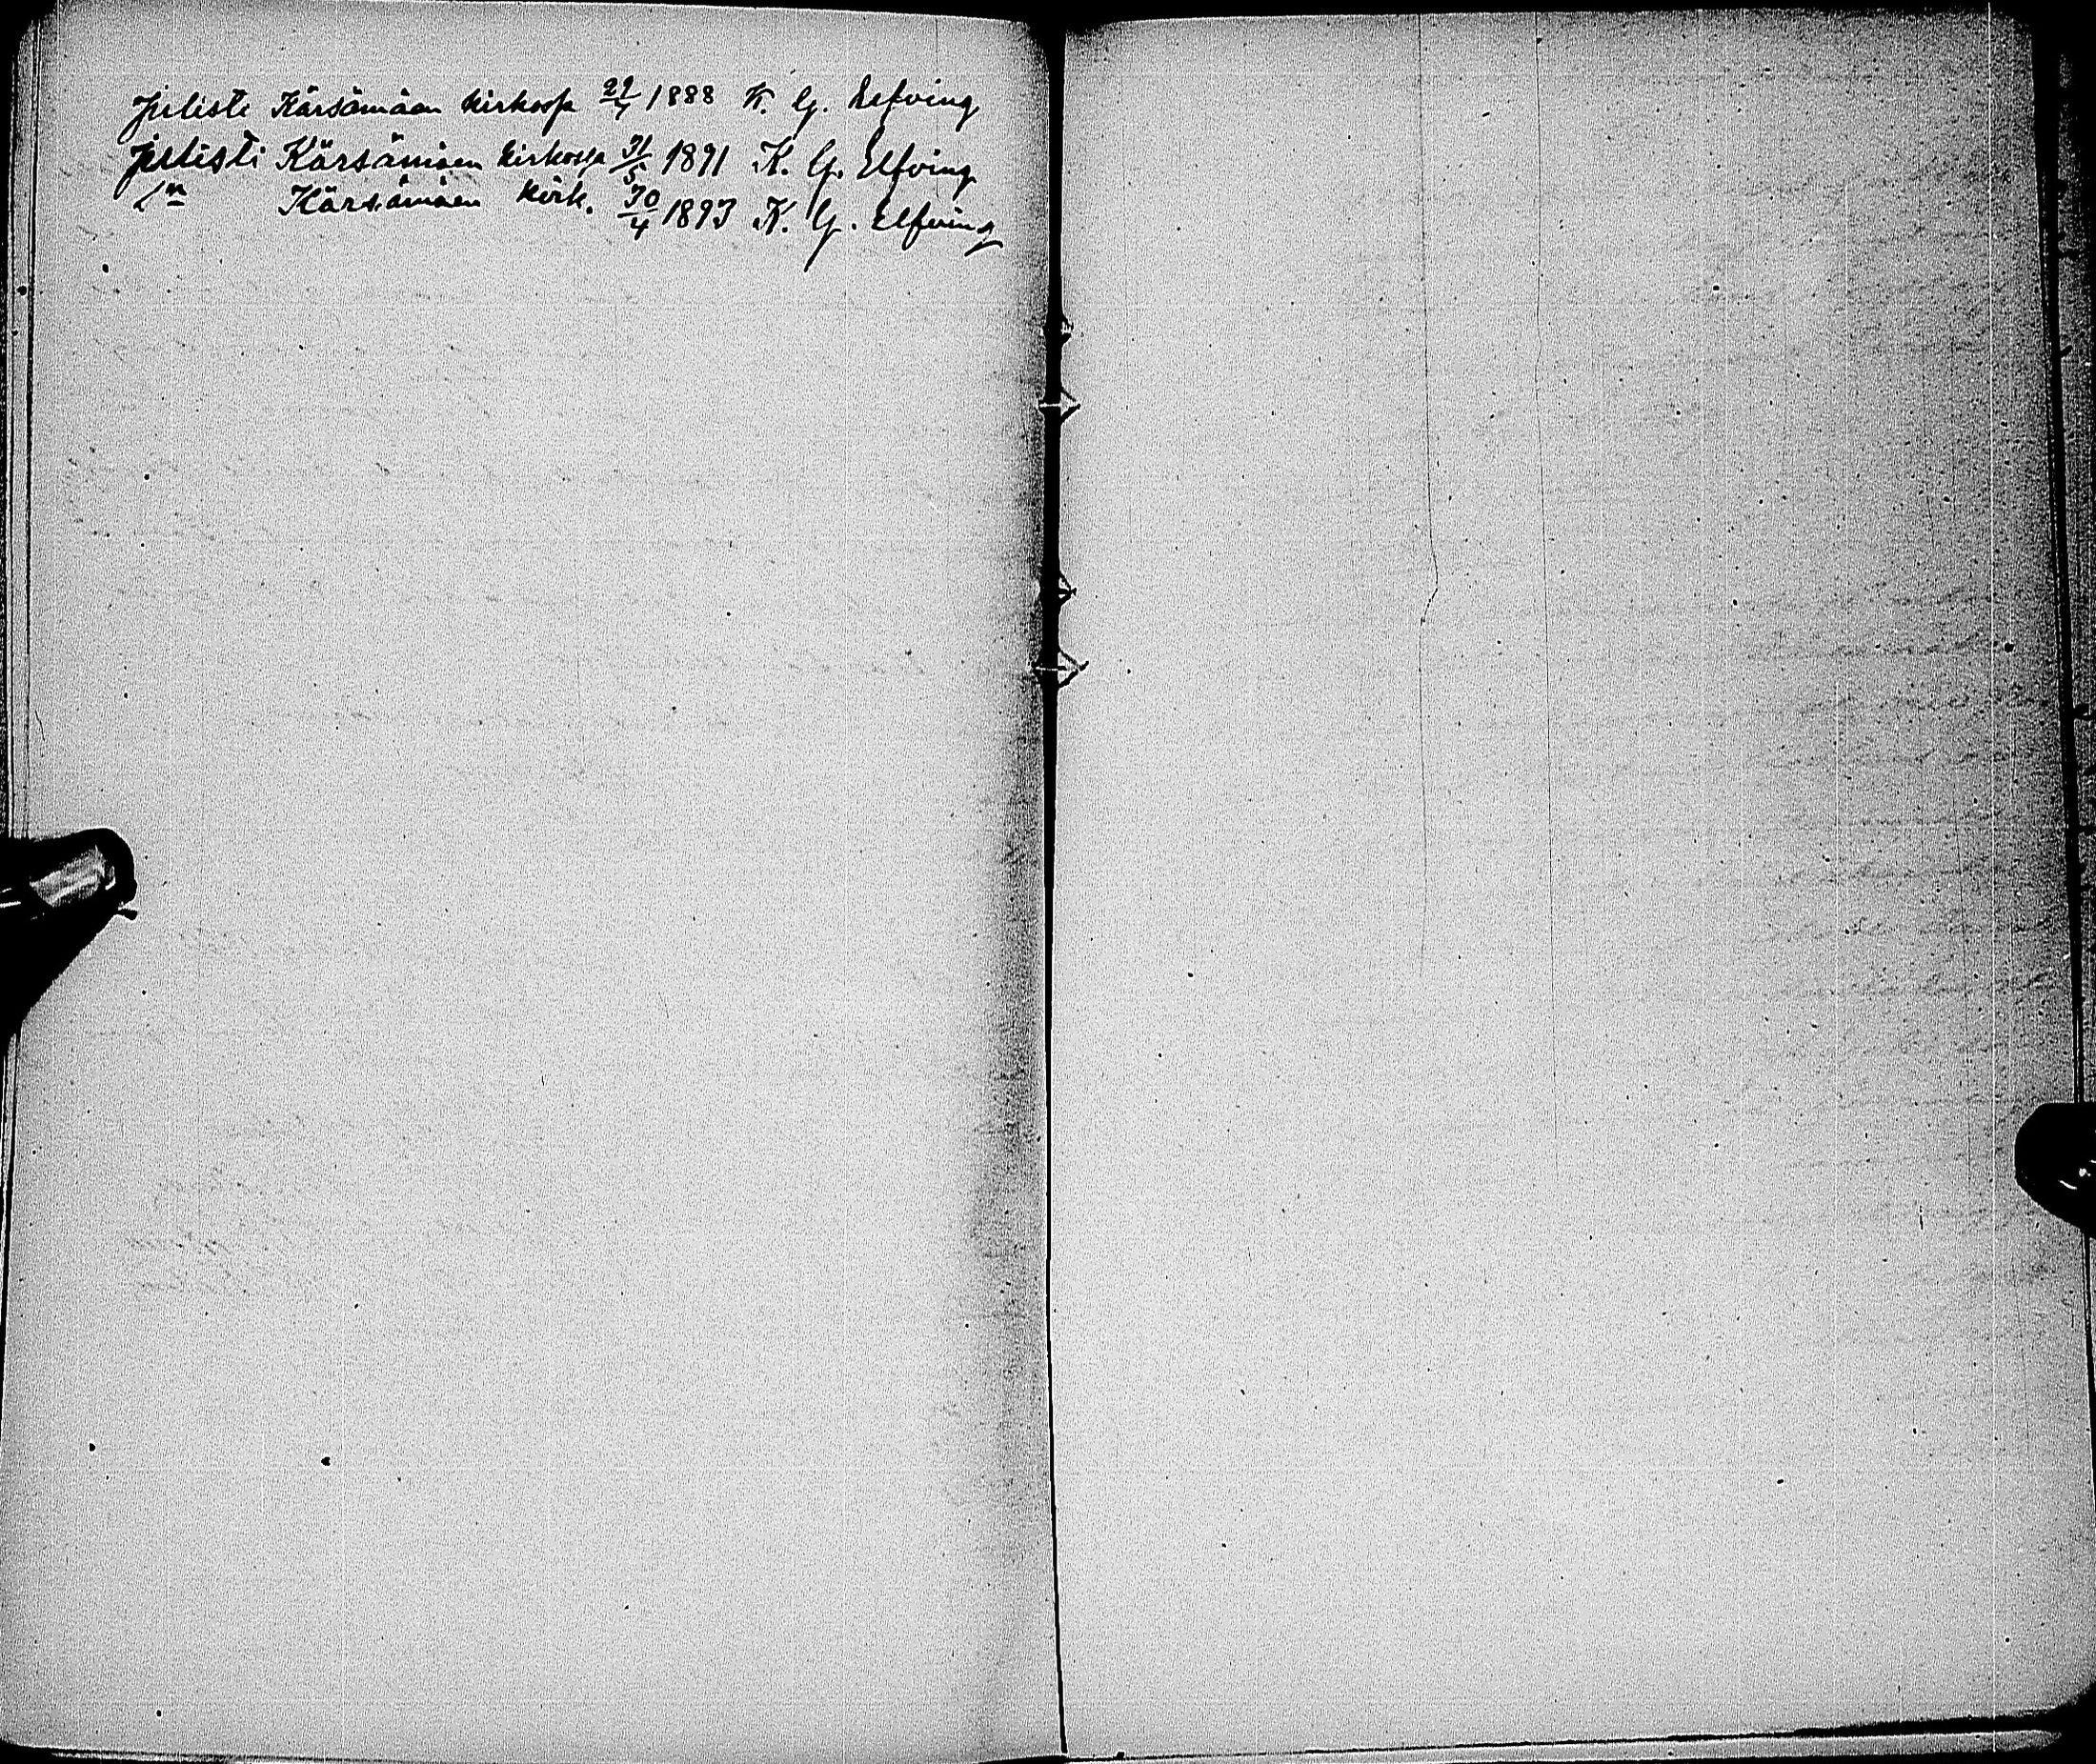 Julisti Kärsämäen kirkossa 22/4 1888 K. G. Elfving
Julisti Kärsämäen kirkossa 31/5 1891 K. G. Elfving
Kärsämäen kirk. 30/4 1893 K. G. Elfving